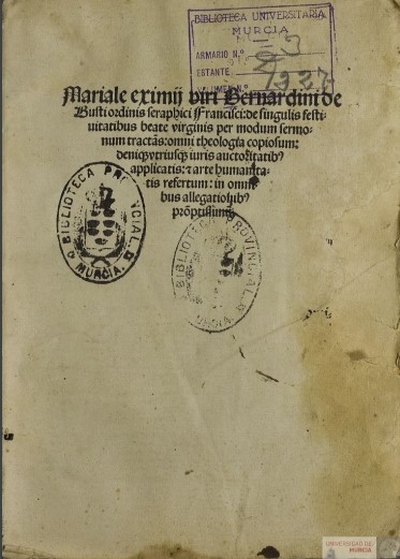 BIBLIOTECA UNIVERSITARIA
MURCIA
ARMARIO N.º
ESTANTE
Mariale eximij viri Bernardini de
Busti ordinis seraphici Francisci: de singulis festi-
uitatibus beate virginis per modum sermo-
num tractãs: omni theologia copiosum:
deniqꝫ vtriusqꝫ iuris auctoritatibꝰ
applicatis: ⁊ arte humanita-
tis refertum: in omni
bus allegationibꝰ
BIBLIOTECA PROVINCIAL
MURCIA
BIBLIOTECA PROVINCIAL
MURCIA
UNIVERSIDAD DE
MURCIA